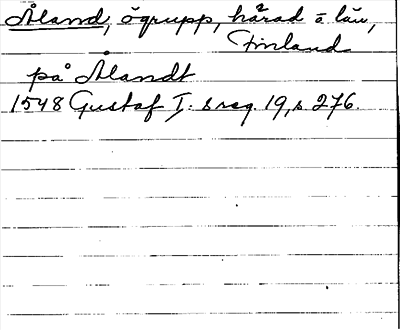 Åland, ögrupp, härad o län,
Finland
på Ålandt
1548 Gustaf I:s reg. 19, s 276.